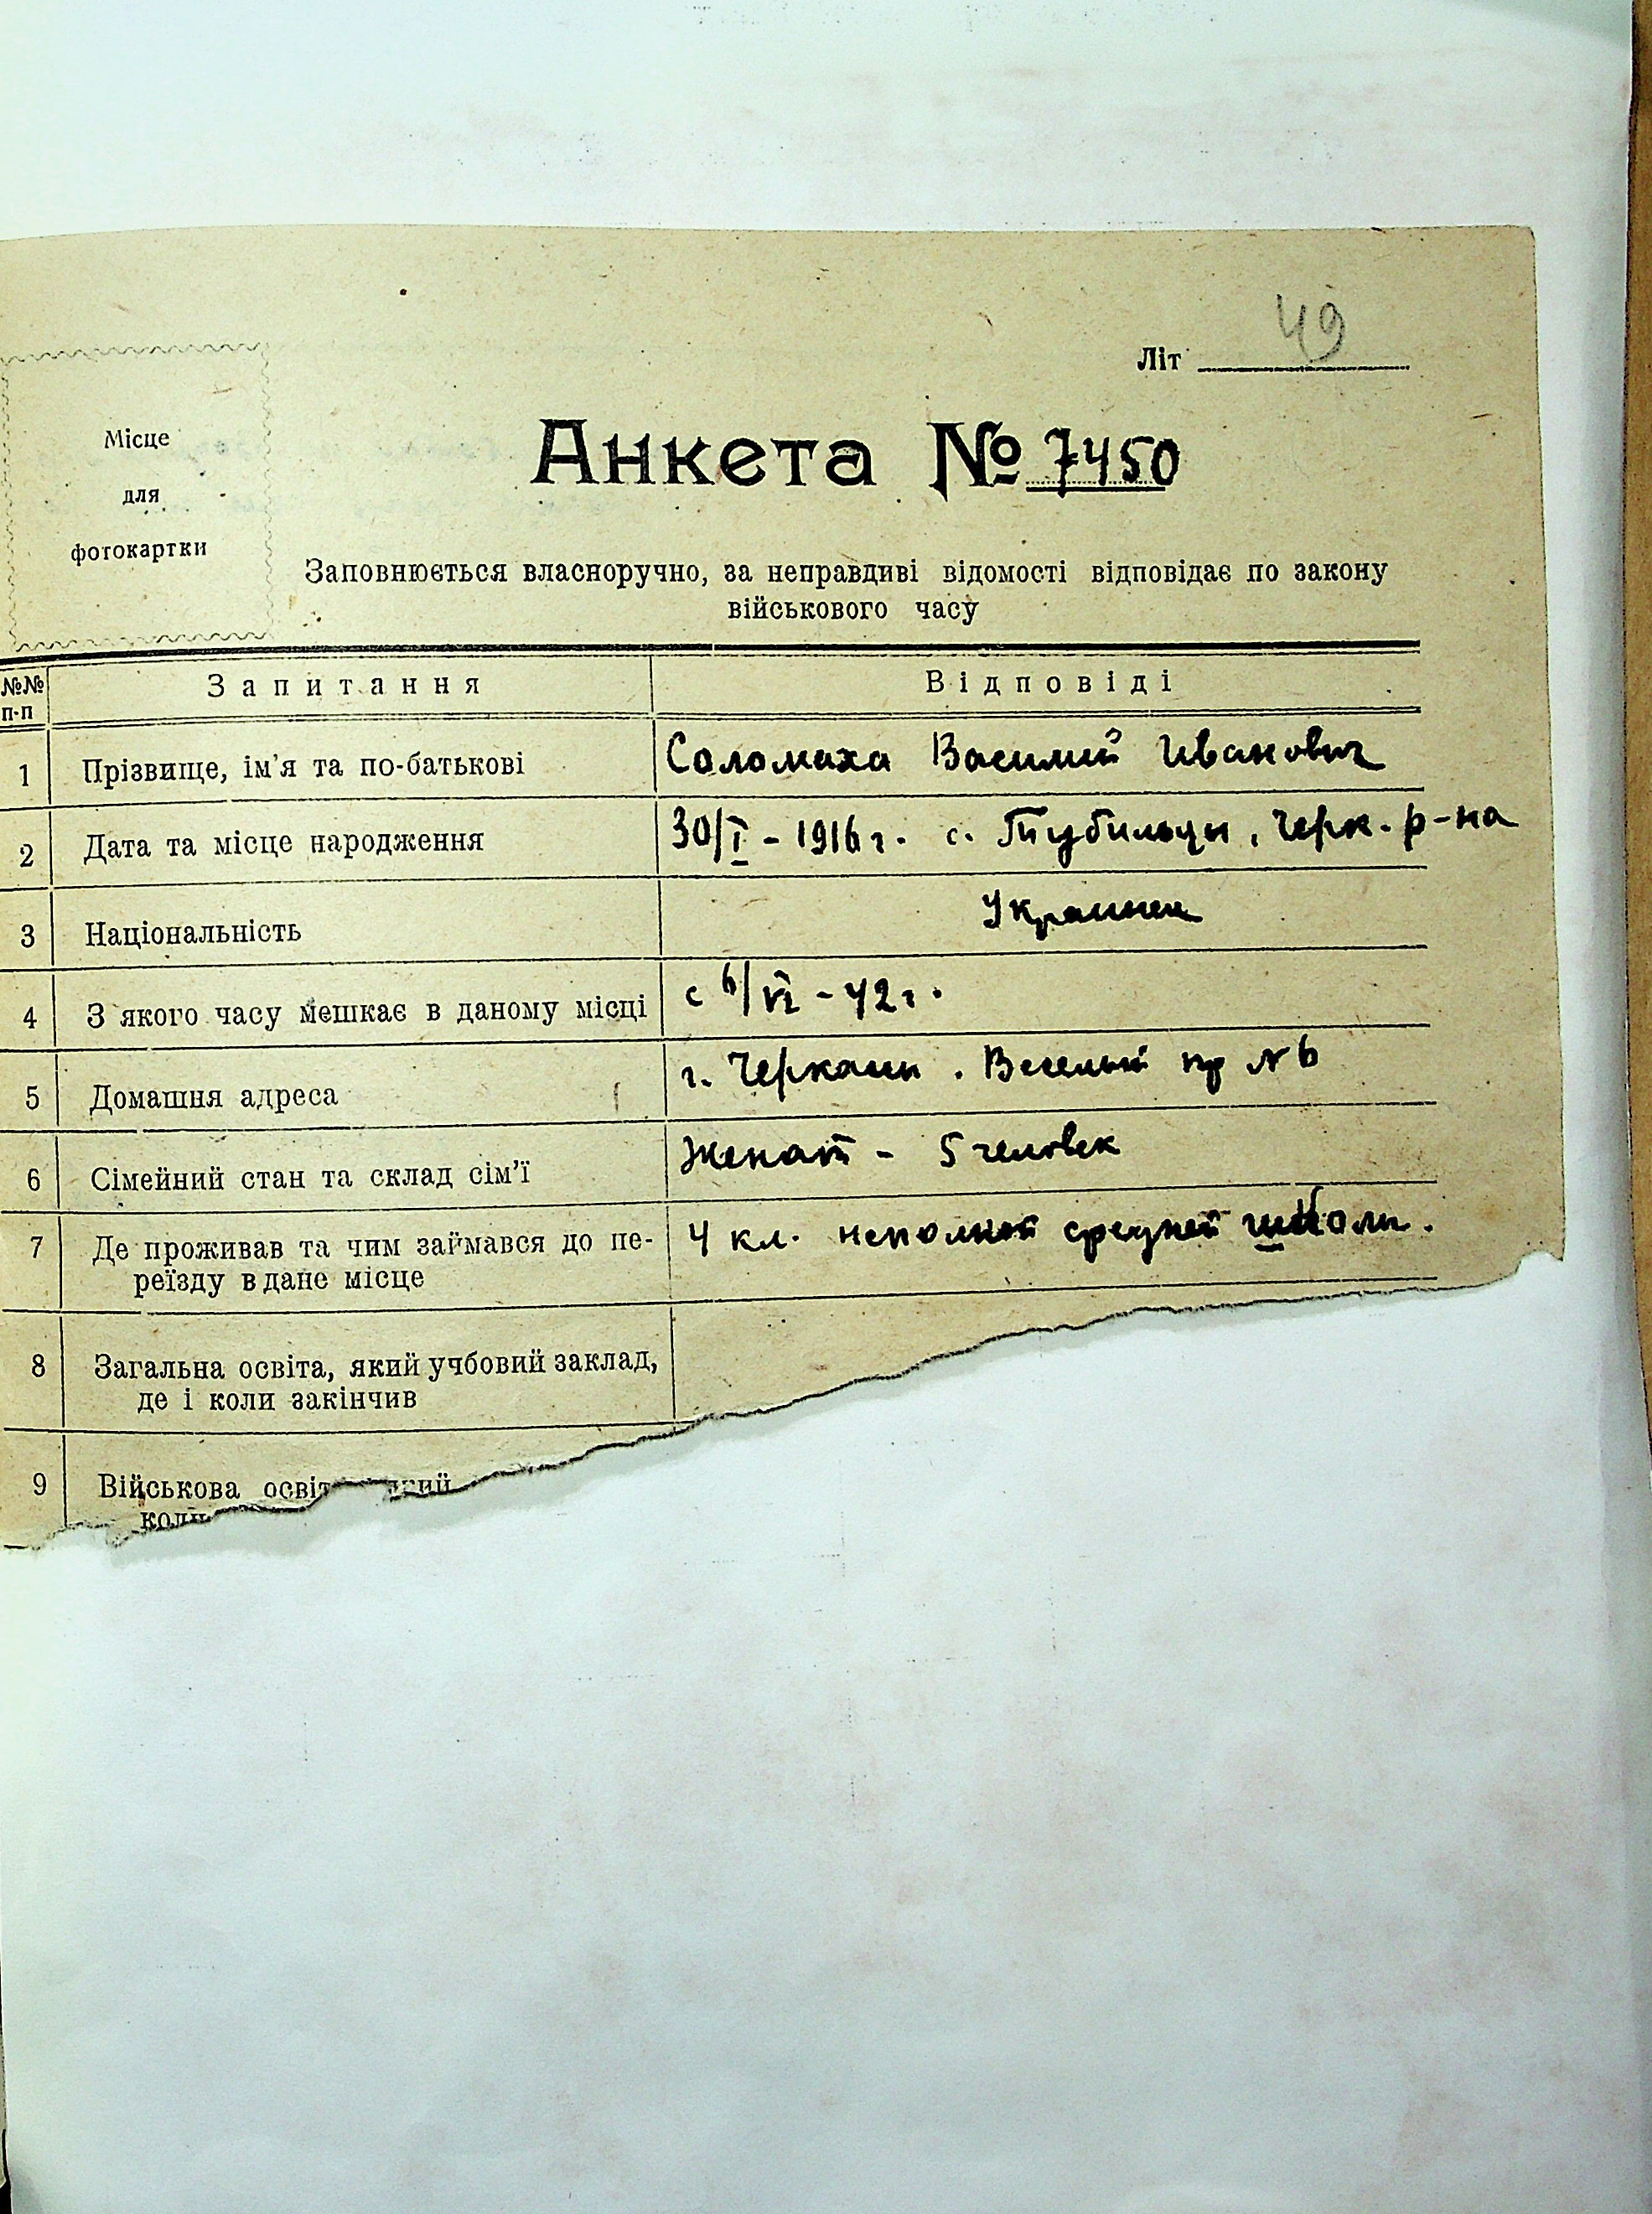 49
Літ
Місце
для
фотокартки
Анкета № 7450
Заповнюється власноручно, за неправдиві відомості відповідає по закону
військового часу
№№ п-п Запитання Відповіді
1 Прізвище, ім'я та по-батькові Соломаха Василий Иванович
2 Дата та місце народження 30/I - 1916 г. с. Тубильцы, Черк. р-на
3 Національність Украинец
4 З якого часу мешкає в даному місці с 6/VI - 42 г.
5 Домашня адреса г. Черкассы. Веселый пр № 6
6 Сімейний стан та склад сім'ї Женат - 5 человек
7 Де проживав та чим займався до пе- 4 кл. неполной средней школы.
реїзду в дане місце
8 Загальна освіта, який учбовий заклад,
де і коли закінчив
9 Військова освіт